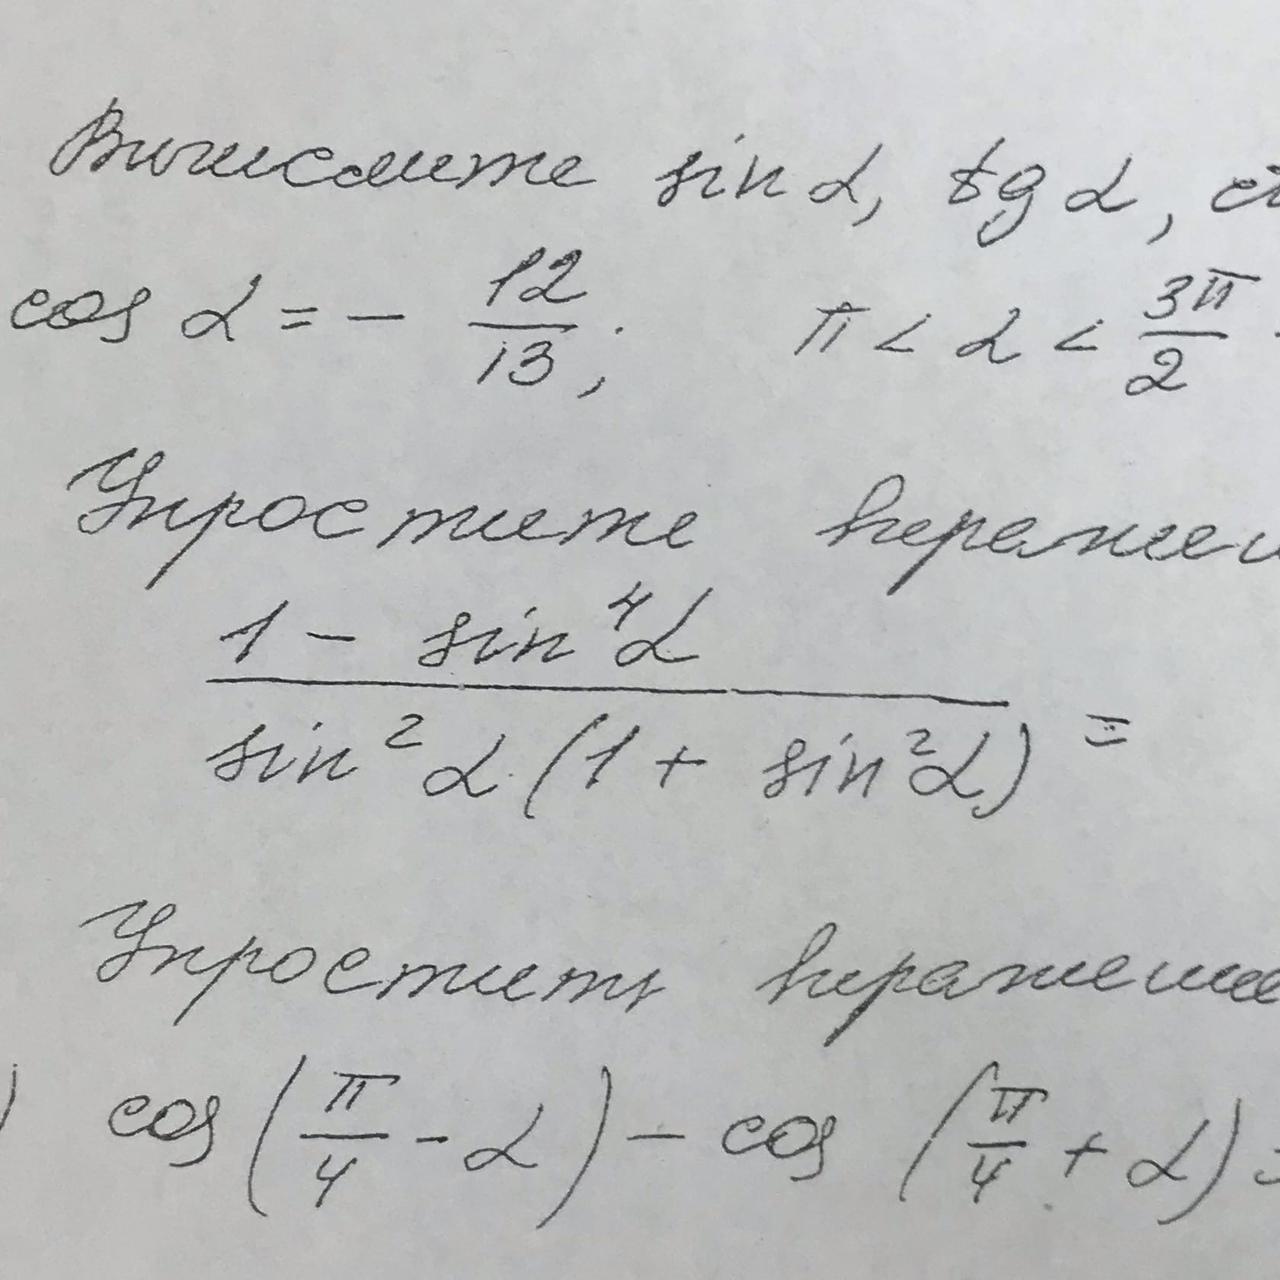 Вычислите sin α, tg α,
cos α = - 12/13; π < α < 3π/2
Упростите
1 - sin⁴α
sin²α (1 + sin²α) =
Упростить
) cos(π/4 - α) - cos(π/4 + α) =